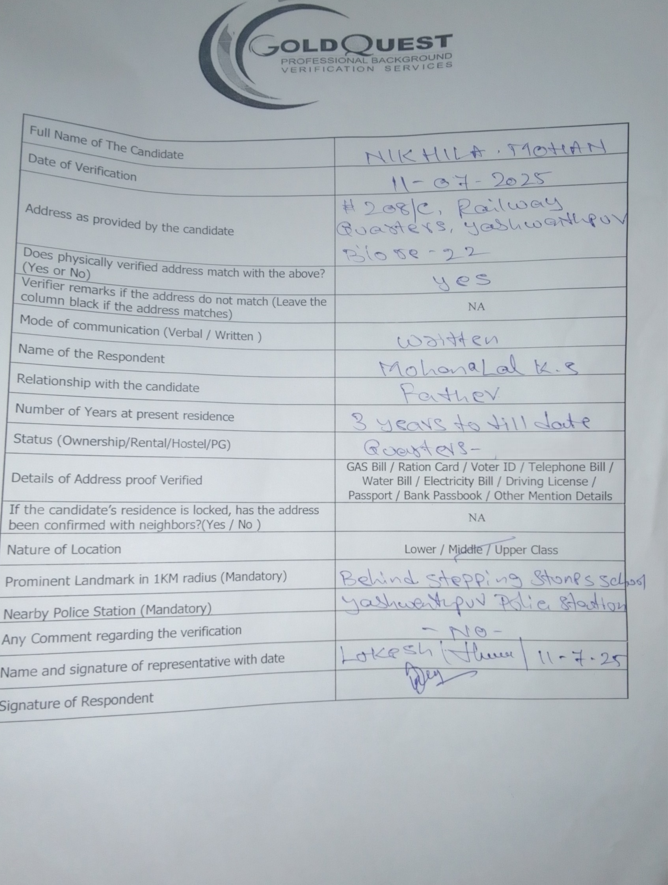 GOLDQUEST
PROFESSIONAL BACKGROUND
VERIFICATION SERVICES
Full Name of The Candidate
NIKHILA . MOHAN
Date of Verification
11-07-2025
Address as provided by the candidate
# 208/C, Railway
Quarters, yashwanthpuv
Does physically verified address match with the above?
(Yes or No)
yes
Verifier remarks if the address do not match (Leave the
column black if the address matches)
NA
Mode of communication (Verbal / Written )
Written
Name of the Respondent
MohanaLal K.S
Relationship with the candidate
Father
Number of Years at present residence
3 years to till date
Status (Ownership/Rental/Hostel/PG)
Quarters-
Details of Address proof Verified
GAS Bill / Ration Card / Voter ID / Telephone Bill /
Water Bill / Electricity Bill / Driving License /
Passport / Bank Passbook / Other Mention Details
If the candidate's residence is locked, has the address
been confirmed with neighbors?(Yes / No )
NA
Nature of Location
Lower / Middle / Upper Class
Prominent Landmark in 1KM radius (Mandatory)
Behind stepping stones school
Nearby Police Station (Mandatory)
yashwantpuv Polie station
Any Comment regarding the verification
- NO -
Name and signature of representative with date
Lokesh / 11-7-25
Signature of Respondent